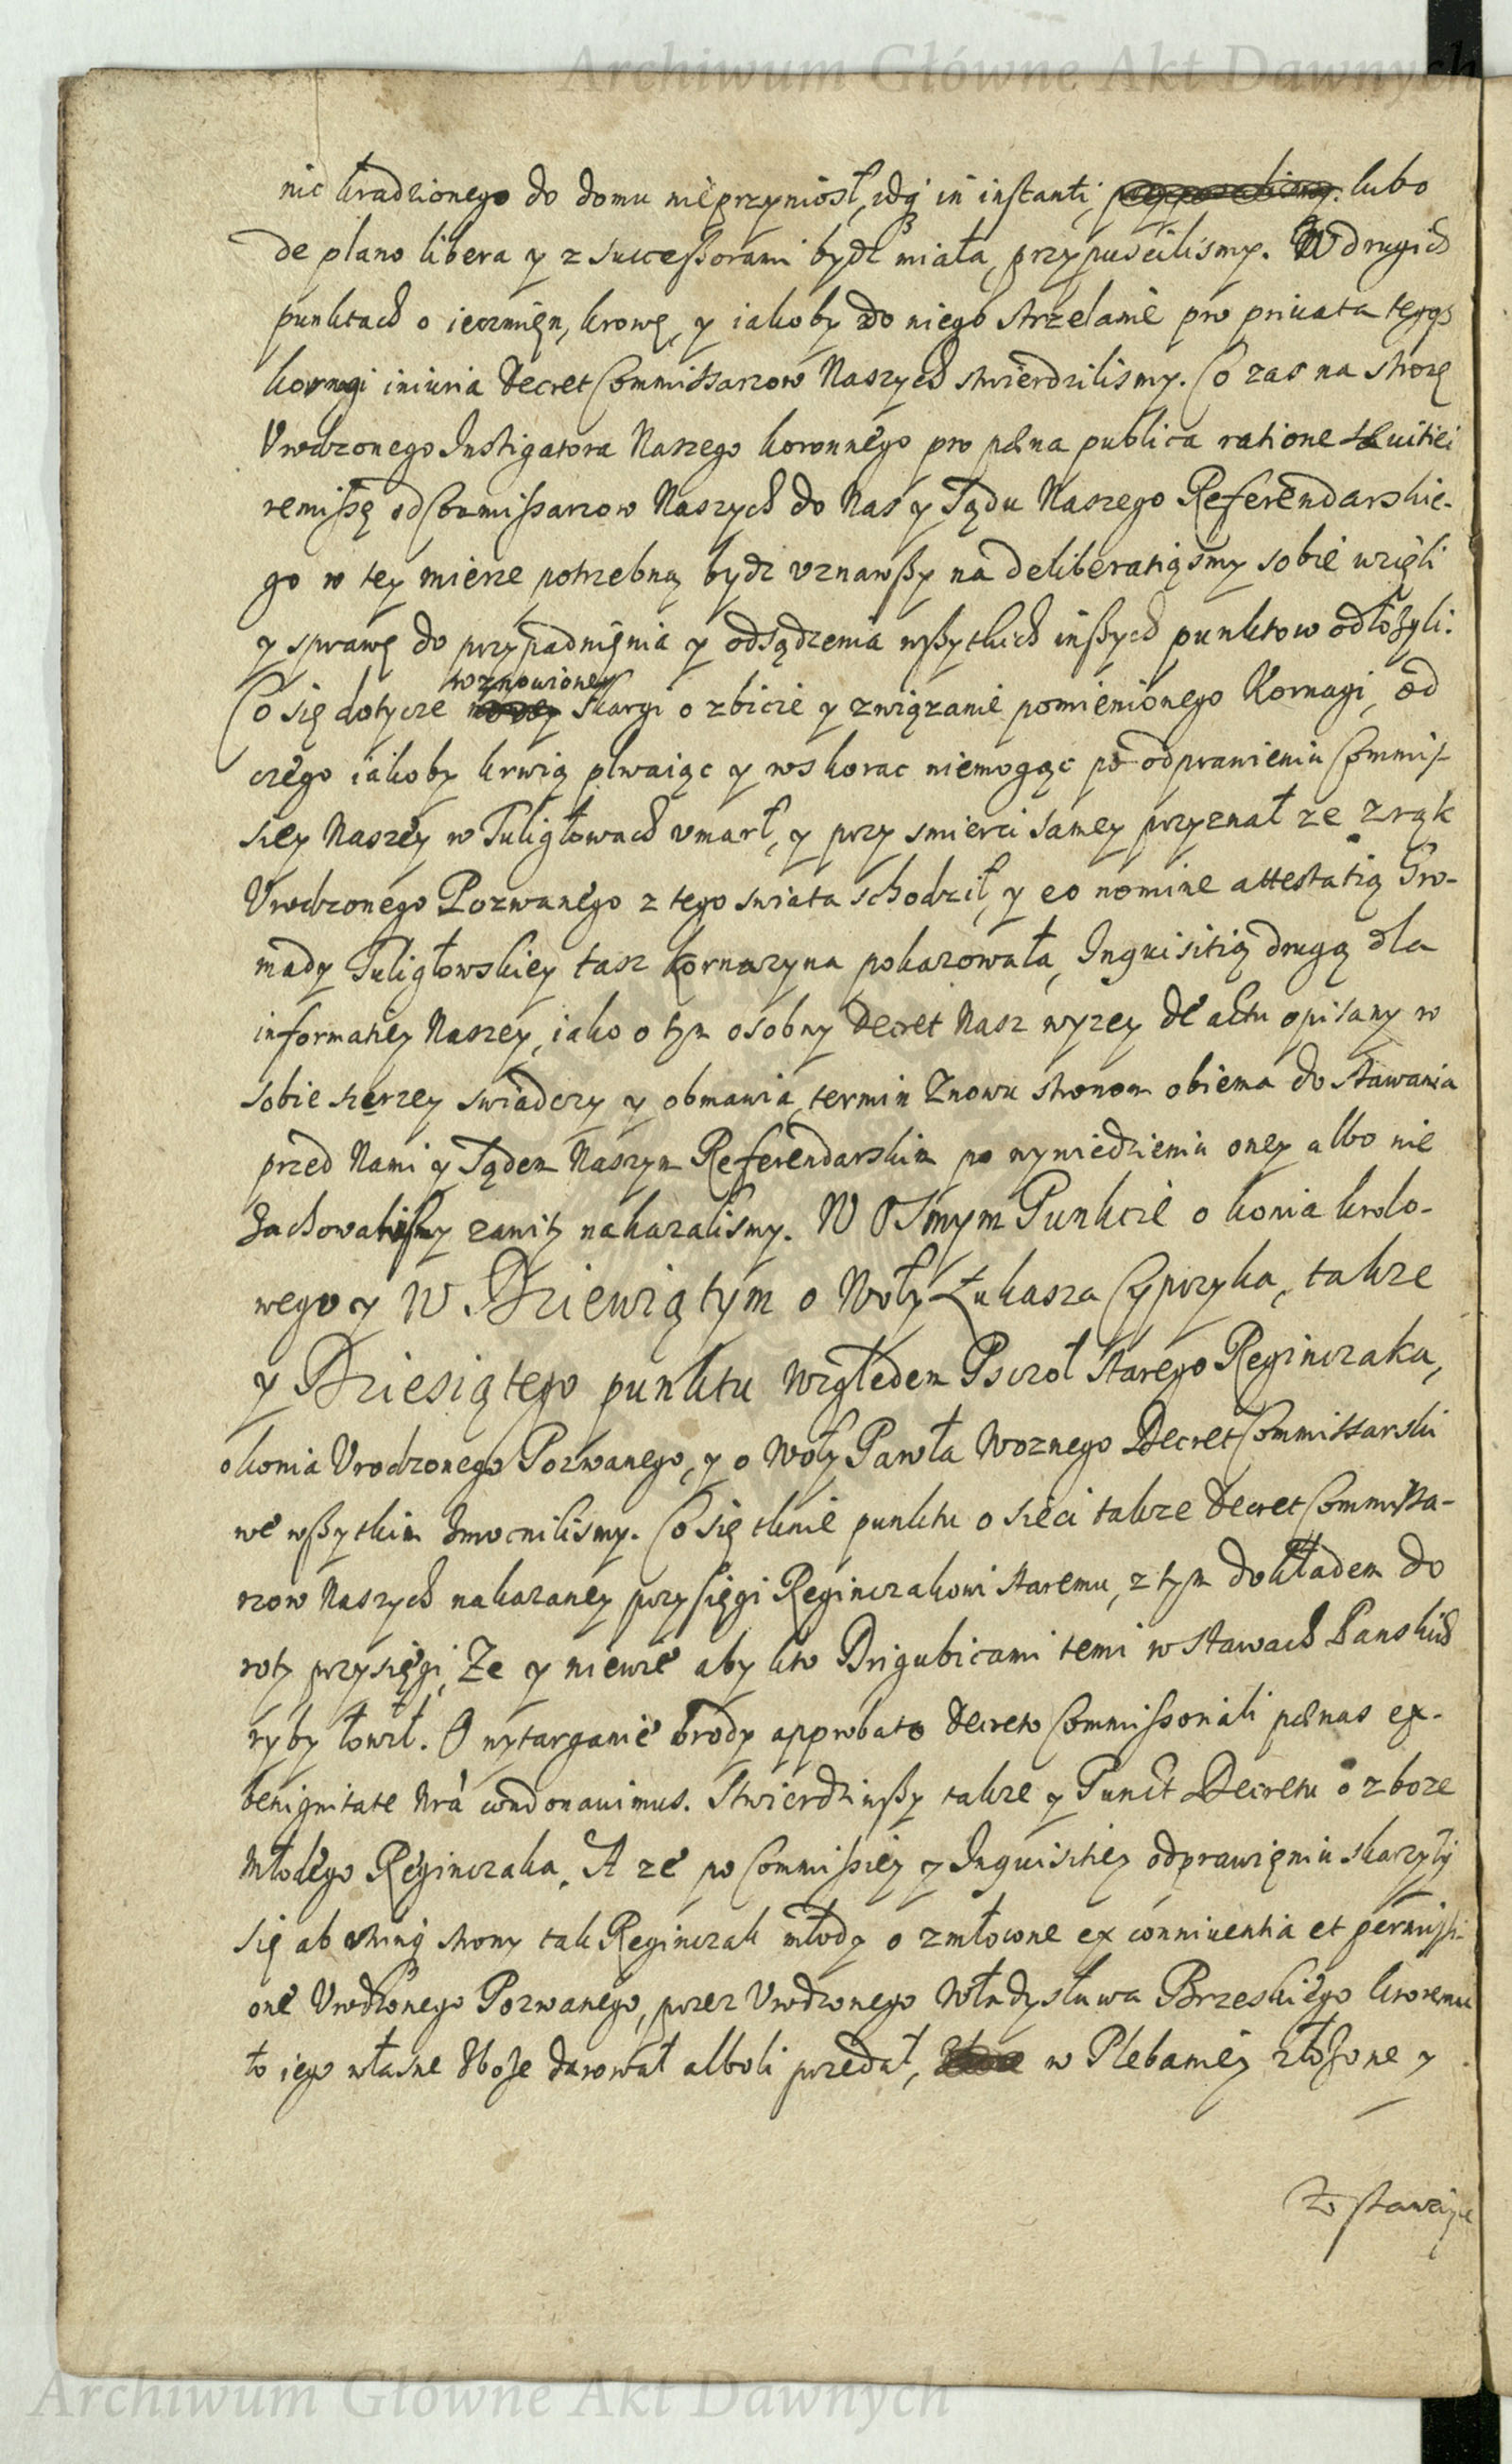 Archiwum Główne Akt Dawnych
nic kradzionego do domu nieprzyniosł, zdj in instanti, lubo
de plano libera y z successorami bydz miała, przypuscilismy. W drugich
punktach o ięczmięn, krowę, y iakoby do niego strzelanie pro priuata tegoż
kornagi iniuria Decret Commissarzow Naszych stwierdzilismy. Co zas na stronę
Vrodzonego Instigatora Naszego koronnego pro pæna publica ratione sæuitiei
remissę od Commissarzow Naszych do Nas y Sądu Naszego Referendarskie-
go w tey mierze potrzebną bydz vznawszy na deliberatiąsmy sobie wzięli
y sprawę do przypadnięnia y odsądzenia wszytkich inszych punktow odłożyli.
wznowioney
Co się dotycze skargi o zbicie y związanie pomienionego Kornagi, od
czego iakoby krwią plwaiąc y wskorac niemogąc po odprawieniu Commis-
siey Naszey w Tuligłowach vmarł, y przy smierci samey przyznał ze z rąk
Vrodzonego Pozwanego z tego swiata schodził, y eo nomine attestatią Gro-
mady Tuligłowskiey tasz kornazyna pokazowała, Inquisitią drugą dla
informatiey Naszey, iako o tym osobny Decret Nasz wyzey de actu opisany w
sobie szerzey swiadczy y obmawia, termin Znowu stronom obiema do stawania
przed Nami y Sądem Naszym Referendarskim po wywiedzieniu oney albo nie
Zachowalismy zawity nakazalismy. W Osmym Punkcie o konia krolo-
wego y W Dziewiątym o Woły Łukasza Cyprzyka, takze
y Dziesiątego punktu względem Pszczoł starego Reginczaka,
o konia Vrodzonego Pozwanego, y o Woły Pawła Woznego Decret Commissarski
we wszytkim Zmocnilismy. Co się tknie punktu o sieci takze Decret Commissa-
rzow Naszych nakazaney przysięgi Reginczakowi staremu, z tym dokładem do
roty przysięgi, Ze y niewie aby kto Drigubicami temi w stawach Panskich
ryby łowił. O wytarganie brody approbato Decreto Commissoriali pænas ex
benignitate Nrâ condonauimus. Stwierdziwszy takze y Punct Decretu o zboze
Młodego Reginczaka. A ze po Commissiey y Inquisitiey odprawięniu skarzyły
się ab strony tak Reginczak młody o zmłocone ex conniuentia et permissi-
one Vrodzonego Pozwanego, przez Vrodzonego Władysława Brzeskiego ktoremu
to iego własne Zboże darował alboli przedał, w Plebaniey złożone y
Zostawaiące
Archiwum Główne Akt Dawnych